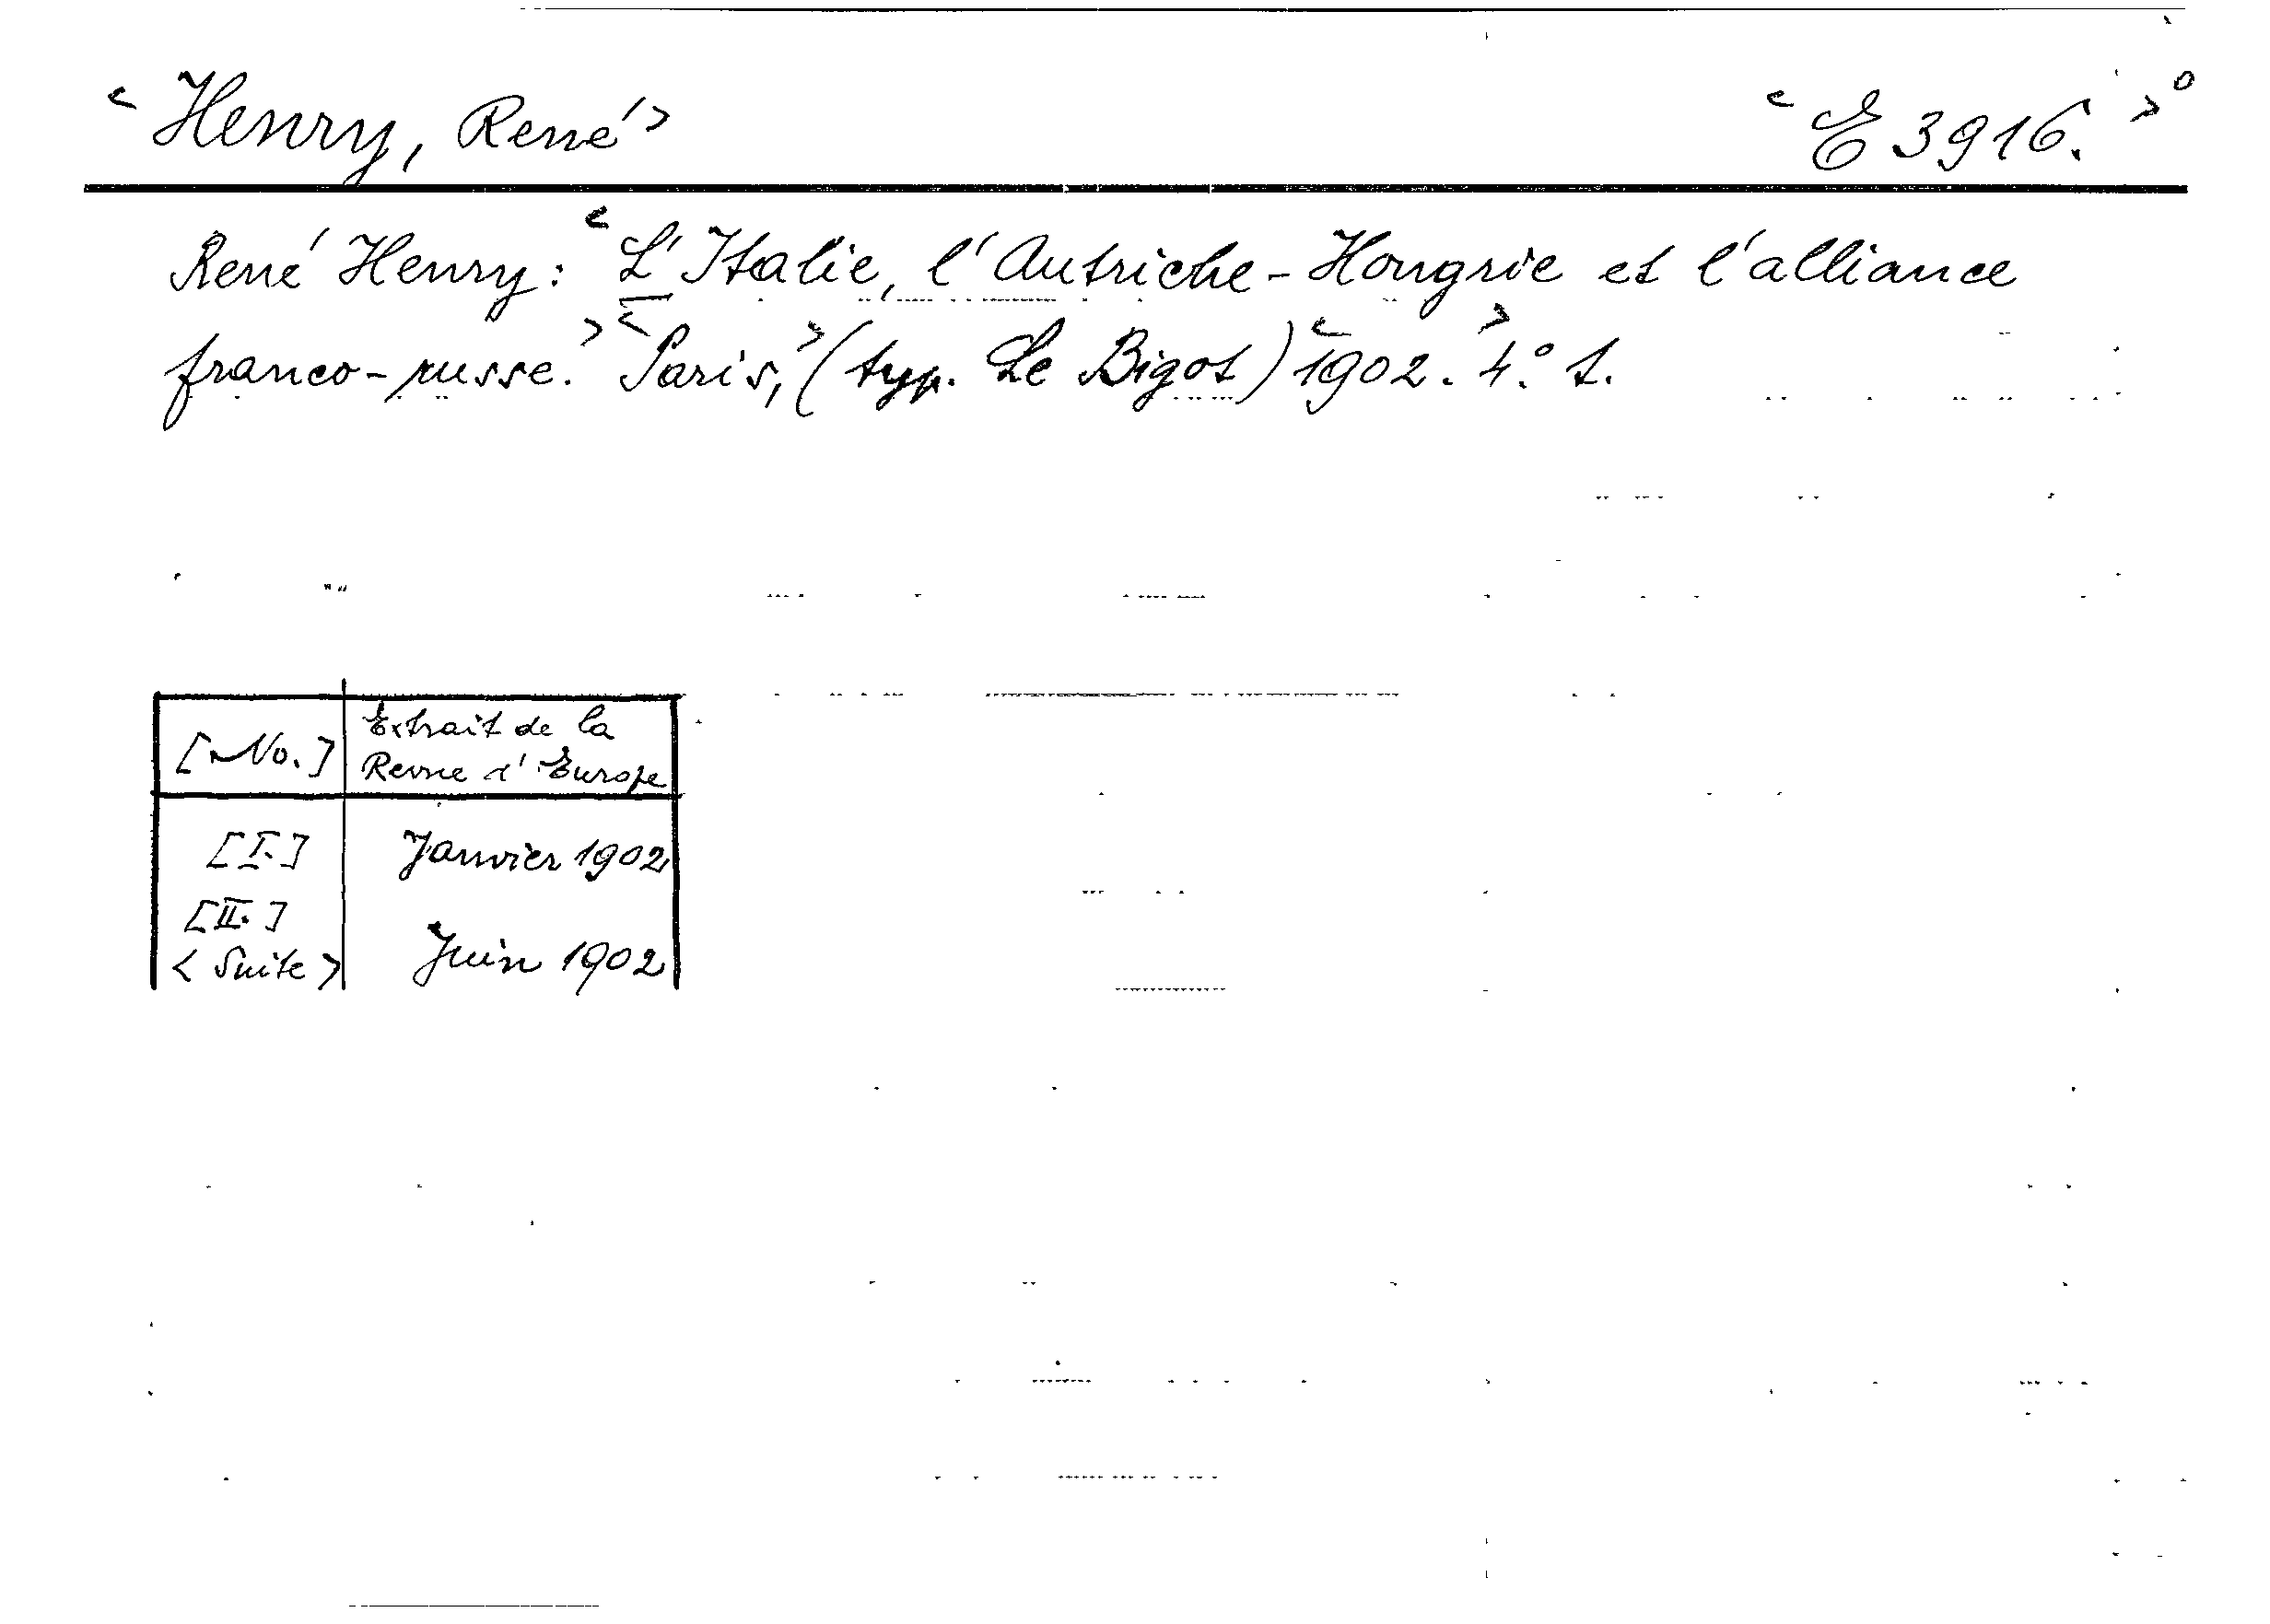 <Henry, René>
<E 3916.>°
René Henry: <L'Italie, l'Autriche-Hongrie et l'alliance
franco-russe.> <Paris,> (typ. Le Bigot) <1902.> 4.° 1.
[No.] Extrait de la
Revue d'Europe
[I.] Janvier 1902
[II.]
<Suite> Juin 1902